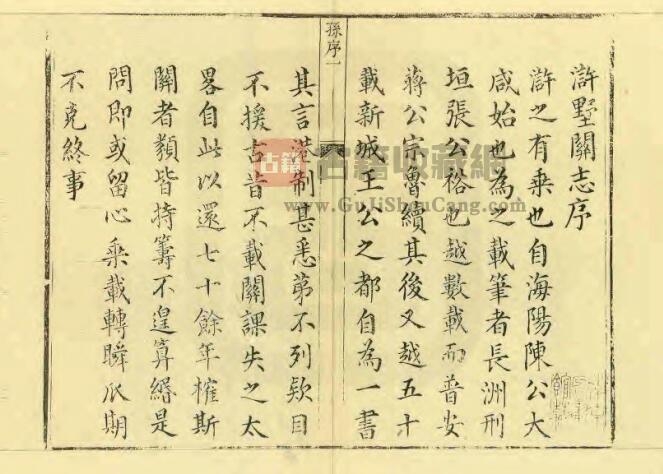 滸墅關志序
滸之有乘也自海陽陳公大
咸始也為之載筆者長洲刑
垣張公裕也越數載而普安
蔣公宗魯續其後又越五十
載新城王公之都自為一書
孫序一
其言淮制甚悉苐不列欵目
不援古昔不載關課失之太
畧自此以還七十餘年榷斯
關者類皆持籌不遑算緡是
問即或留心乘載轉瞬瓜期
不克終事
古籍
古籍收藏網
www.GuJiShouCang.com